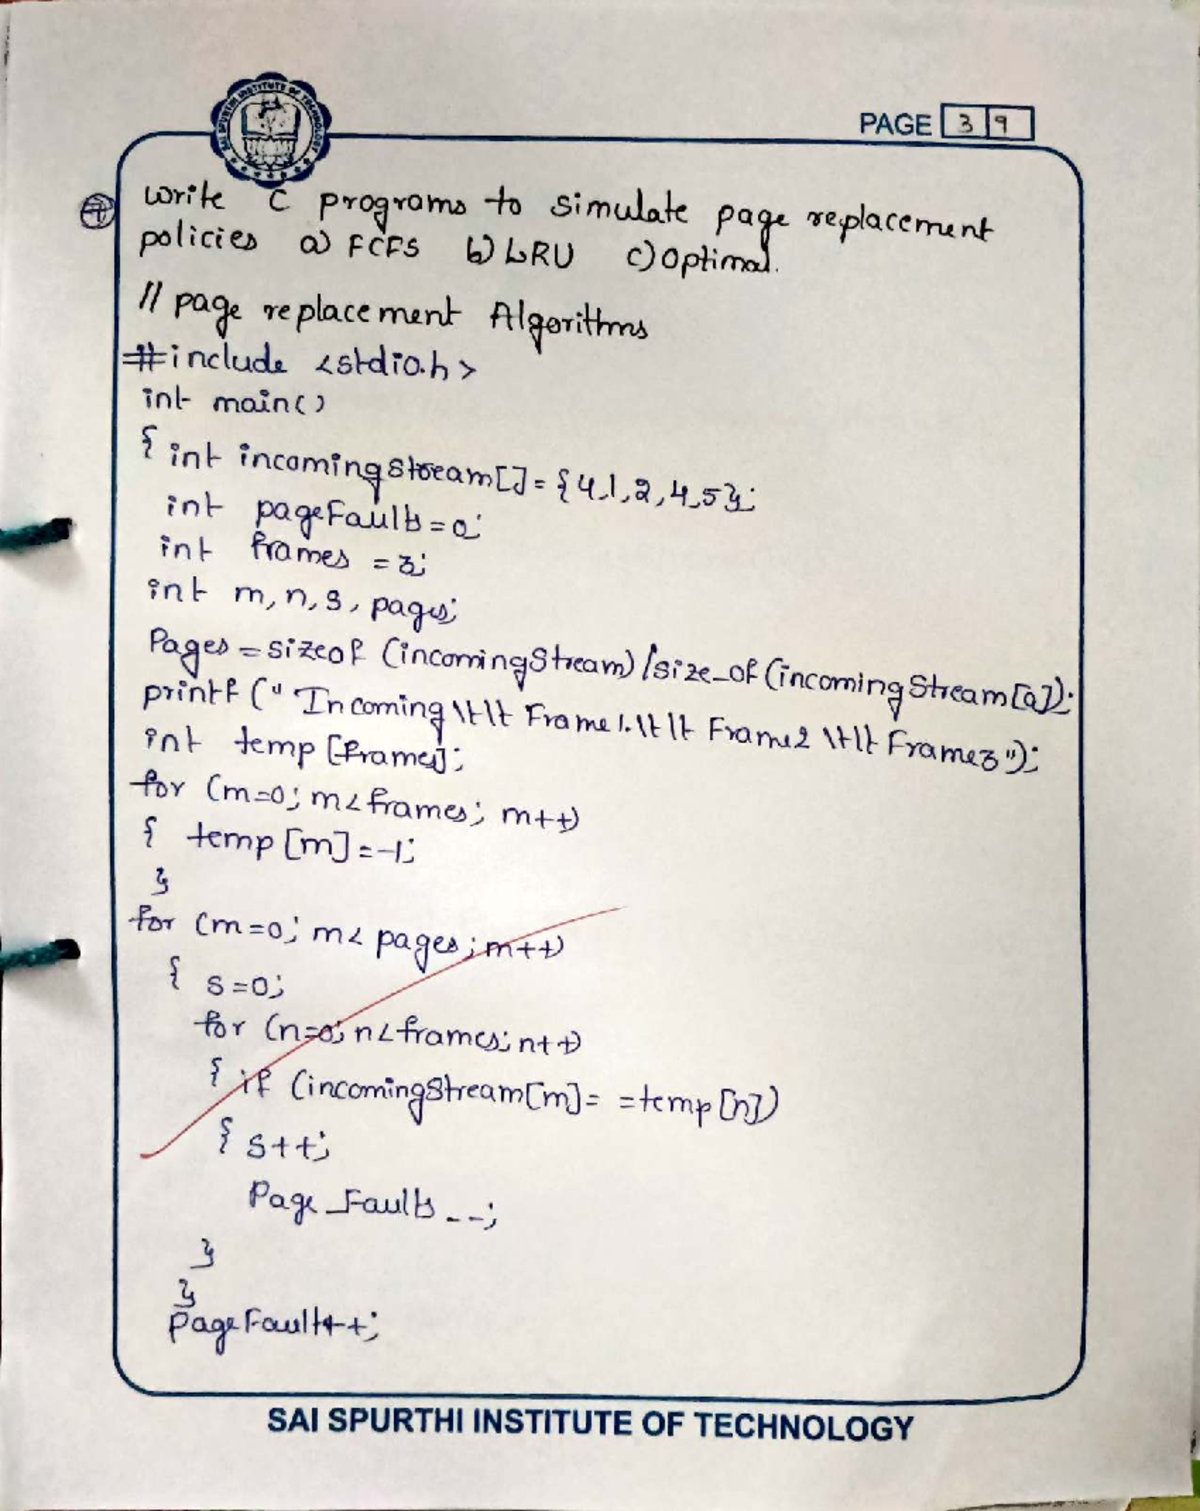 SAI SPURTHI INSTITUTE OF TECHNOLOGY
PAGE 39
7 write C programs to simulate page replacement
policies a) FCFS b) LRU c) Optimal.
// page replacement Algorithms
#include <stdio.h>
int main()
{ int incomingStream[] = {4,1,2,4,5};
int pageFaults = 0;
int frames = 3;
int m, n, s, pages;
Pages = sizeof (incomingStream)/size_of(incomingStream[0]);
printf (" Incoming \t\t Frame 1 \t\t Frame2 \t\t Frame3 ");
int temp [frames];
for (m=0; m<frames; m++)
{ temp [m] = -1;
}
for (m=0; m< pages; m++)
{ s=0;
for (n=0; n<frames; n++)
{ if (incomingStream[m]= =temp [n])
{ s++;
Page_Faults --;
}
}
pageFault++;
SAI SPURTHI INSTITUTE OF TECHNOLOGY